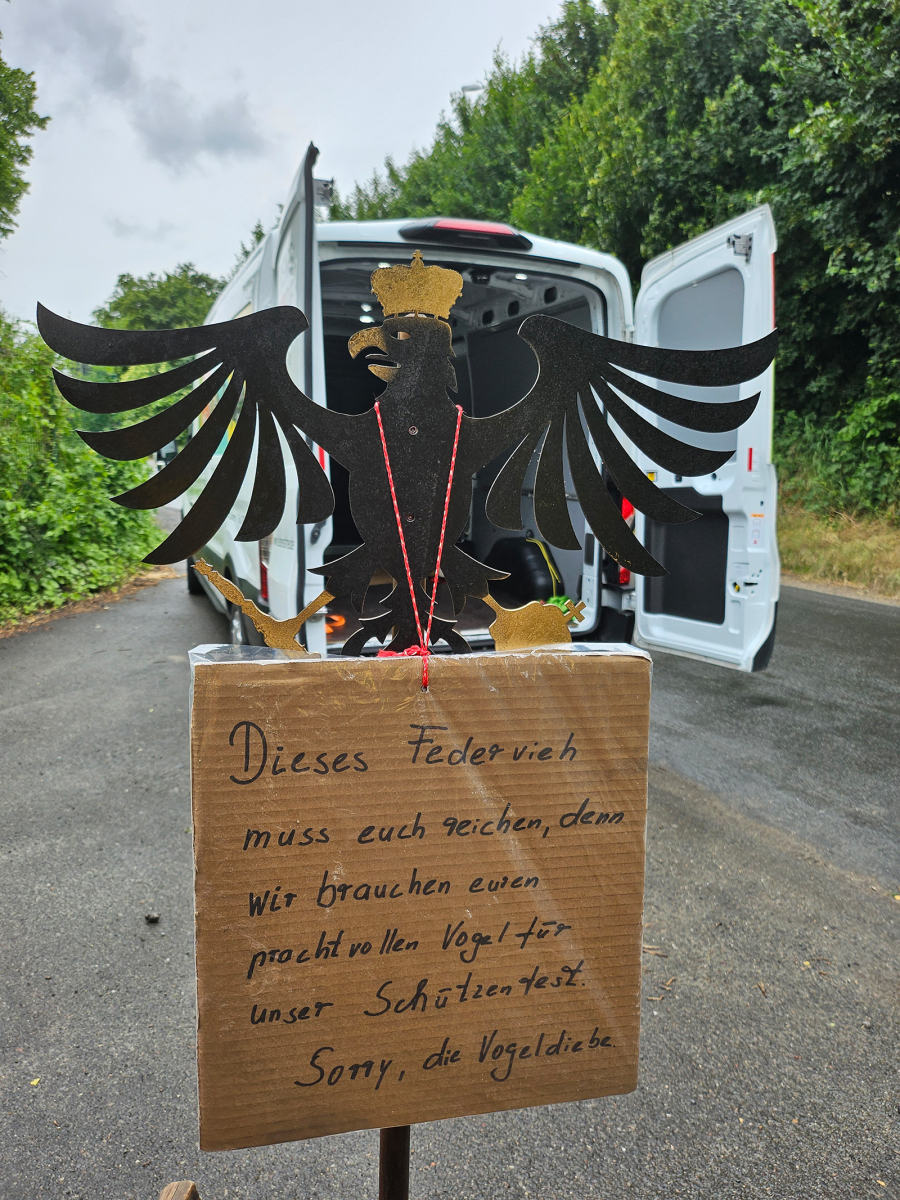 Dieses Federvieh
muss euch reichen, denn
wir brauchen euren
prachtvollen Vogel für
unser Schützenfest.
Sorry, die Vogeldiebe.